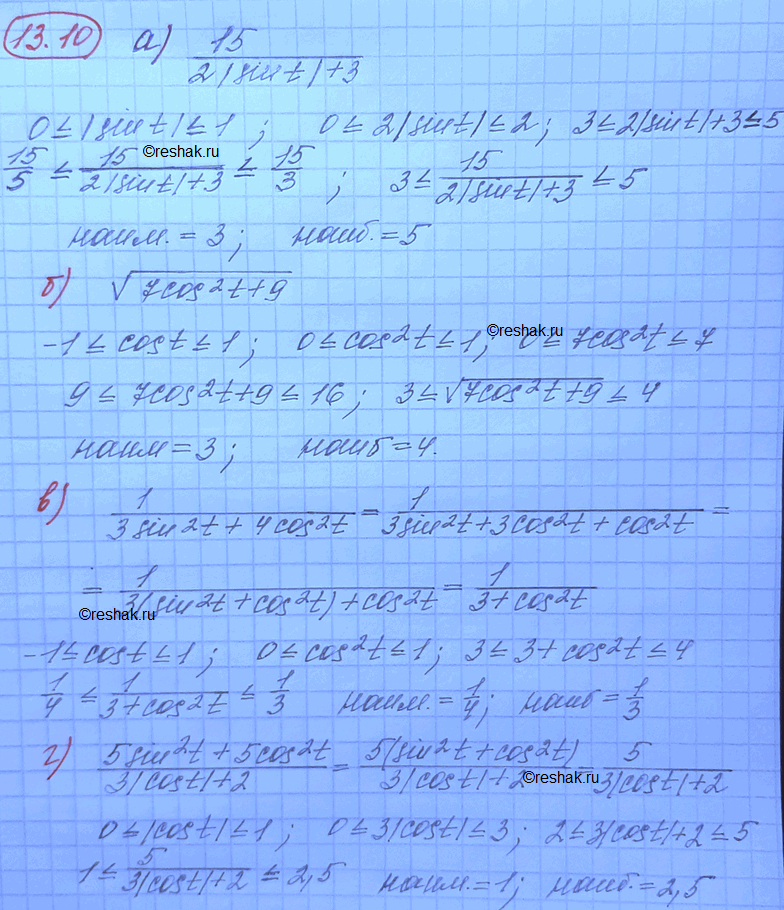 13.10 а) 15/(2|sint|+3)
0≤|sint|≤1 ; 0≤2|sint|≤2; 3≤2|sint|+3≤5
©reshak.ru
15/5 ≤ 15/(2|sint|+3) ≤ 15/3 ; 3≤ 15/(2|sint|+3) ≤5
наим.=3; наиб.=5
б) √(7cos²t+9)
©reshak.ru
-1≤cost≤1; 0≤cos²t≤1; 0≤7cos²t≤7
9≤7cos²t+9≤16; 3≤√(7cos²t+9)≤4
наим=3; наиб=4.
в) 1/(3sin²t+4cos²t) = 1/(3sin²t+3cos²t+cos²t) =
= 1/(3(sin²t+cos²t)+cos²t) = 1/(3+cos²t)
©reshak.ru
-1≤cost≤1; 0≤cos²t≤1; 3≤3+cos²t≤4
1/4 ≤ 1/(3+cos²t) ≤ 1/3 наим.=1/4; наиб=1/3
г) (5sin²t+5cos²t)/(3|cost|+2) = 5(sin²t+cos²t)/(3|cost|+2) = 5/(3|cost|+2)
©reshak.ru
0≤|cost|≤1; 0≤3|cost|≤3; 2≤3|cost|+2≤5
1≤ 5/(3|cost|+2) ≤2,5 наим.=1; наиб.=2,5